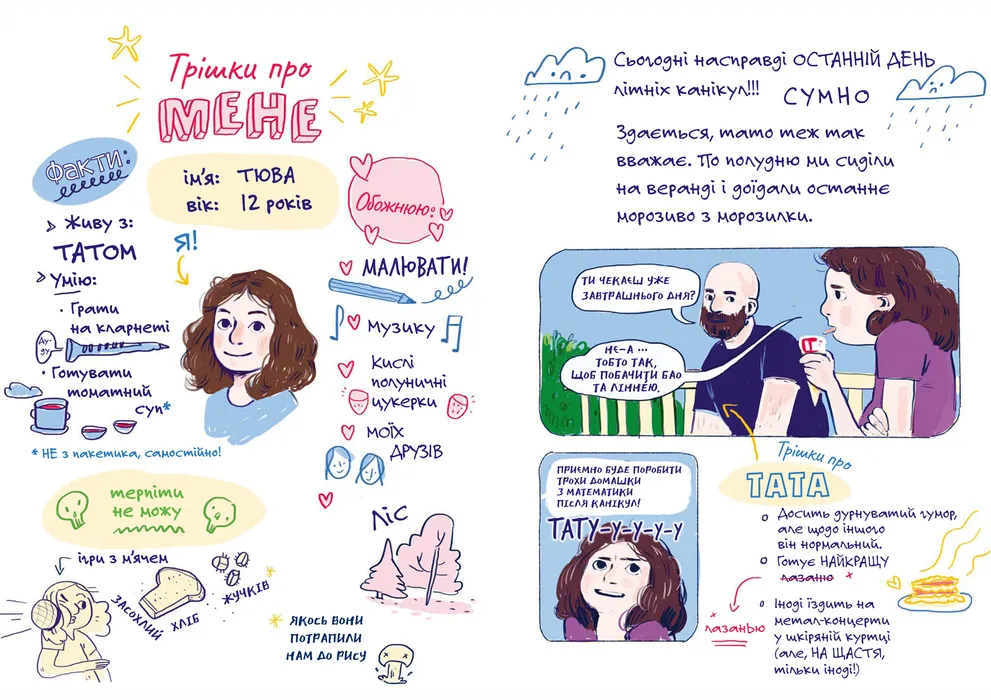 Трішки про
МЕНЕ
Факти:
ім'я: ТЮВА
вік: 12 років
Я!
Живу з:
ТАТОМ
Умію:
· Грати
на кларнеті
Ду-
ду
· Готувати
томатний
суп*
* НЕ з пакетика, самостійно!
Обожнюю:
МАЛЮВАТИ!
музику
кислі
полуничні
цукерки
моїх
ДРУЗІВ
ліс
терпіти
не можу
ігри з м'ячем
ЗАСОХЛИЙ
ХЛІБ
ЖУЧКІВ*
* ЯКОСЬ ВОНИ
ПОТРАПИЛИ
НАМ ДО РИСУ
Сьогодні насправді ОСТАННІЙ ДЕНЬ
літніх канікул!!!
СУМНО
Здається, тато теж так
вважає. По полудню ми сиділи
на веранді і доїдали останнє
морозиво з морозилки.
ТИ ЧЕКАЄШ УЖЕ
ЗАВТРАШНЬОГО ДНЯ?
НЕ-А ...
ТОБТО ТАК,
ЩОБ ПОБАЧИТИ БАО
ТА ЛІННЕЮ.
ПРИЄМНО БУДЕ ПОРОБИТИ
ТРОХИ ДОМАШКИ
З МАТЕМАТИКИ
ПІСЛЯ КАНІКУЛ!
ТАТУ-У-У-У-У
Трішки про
ТАТА
Досить дурнуватий гумор,
але щодо іншого
він нормальний.
Готує НАЙКРАЩУ
лазаню
лазанью
Іноді їздить на
метал-концерти
у шкіряній куртці
(але, НА ЩАСТЯ,
тільки іноді!)